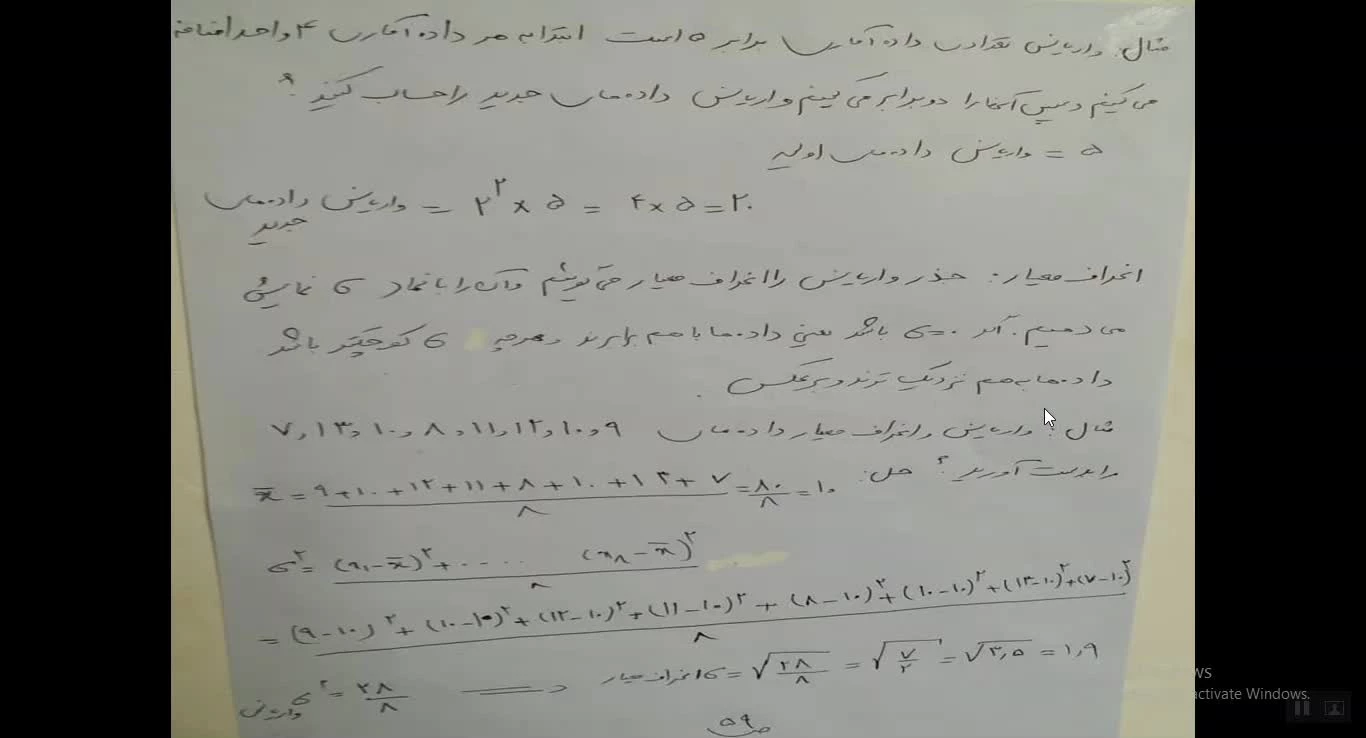 مثال: واریانس تعدادی داده آماری برابر ۵ است ابتدا به هر داده آماری ۴ واحد اضافه
می کنیم و سپس آنها را دو برابر می کنیم واریانس داده های جدید را حساب کنید؟
۵ = واریانس داده های اولیه
واریانس داده های جدید = ۲^۲ × ۵ = ۴ × ۵ = ۲۰
انحراف معیار: جذر واریانس را انحراف معیار می گوئیم و آن را با نماد σ نمایش
می دهیم. اگر σ=۰ باشد یعنی داده ها با هم برابرند و هر چه σ کوچکتر باشد
داده ها به هم نزدیک ترند و برعکس.
مثال: واریانس و انحراف معیار داده های ۷,۱۳,۱۰,۸,۱۱,۱۲,۱۰,۹
را بدست آورید؟ حل:
x̄ = (۹+۱۰+۱۲+۱۱+۸+۱۰+۱۳+۷)/۸ = ۸۰/۸ = ۱۰
σ^۲ = ((x۱-x̄)^۲+.... (x۸-x̄)^۲)/۸
= ((۹-۱۰)^۲+(۱۰-۱۰)^۲+(۱۲-۱۰)^۲+(۱۱-۱۰)^۲+(۸-۱۰)^۲+(۱۰-۱۰)^۲+(۱۳-۱۰)^۲+(۷-۱۰)^۲)/۸
واریانس σ^۲ = ۲۸/۸ ⟹ انحراف معیار σ = √(۲۸/۸) = √(۷/۲) = √۳,۵ = ۱,۹
ص ۵۹
activate Windows.